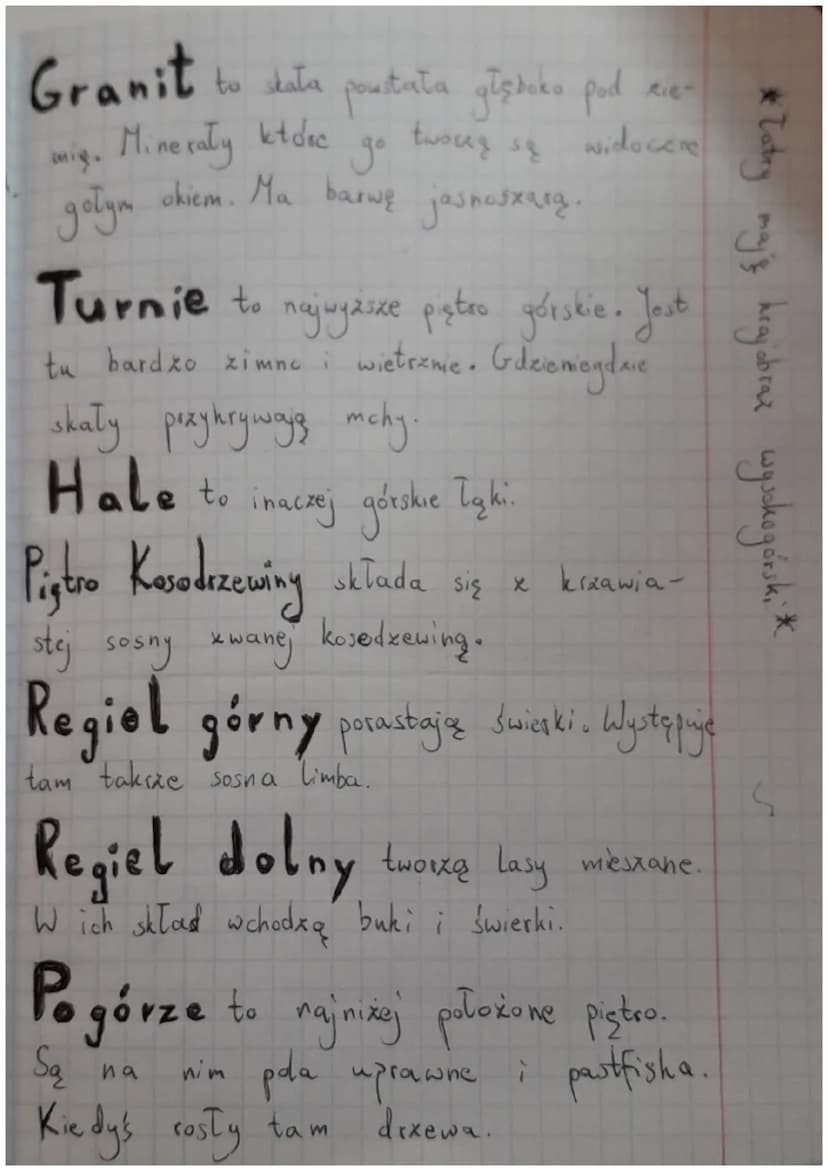 Granit to skała powstała głęboko pod zie-
mią. Minerały które go tworzą są widoczne
gołym okiem. Ma barwę jasnoszarą.
Turnie to najwyższe piętro górskie. Jest
tu bardzo zimno i wietrznie. Gdzieniegdzie
skały przykrywają mchy.
Hale to inaczej górskie łąki.
Piętro Kosodrzewiny składa się z krzawia-
stej sosny zwanej kosodzewiną.
Regiel górny porastają świerki. Występuje
tam takrze sosna limba.
Regiel dolny tworzą lasy mieszane.
W ich skład wchodzą buki i świerki.
Pogórze to najniżej położone piętro.
Są na nim pola uprawne i pastfiska.
Kiedyś rosły tam drzewa.
*Tatry mają krajobraz wysokogórski*